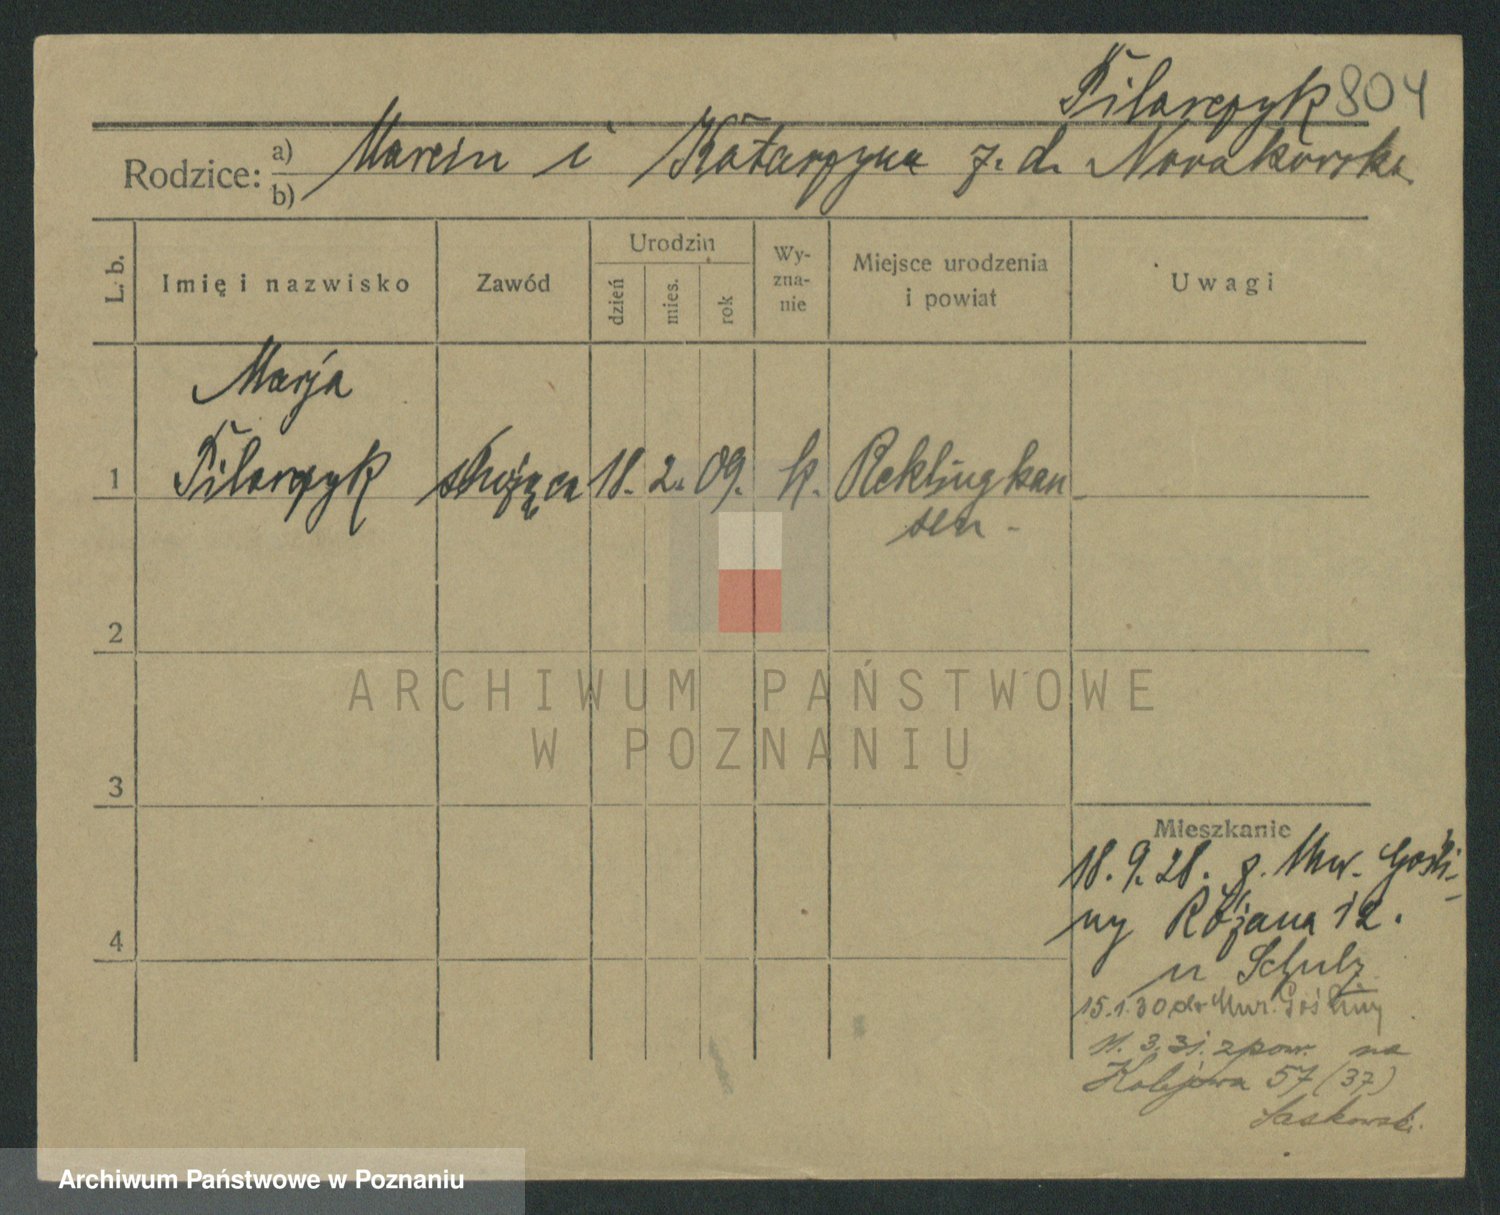 Pilarczyk 804
Rodzice: a) b) Marcin i Katarzyna z. d. Nowakowska
L. b. Imię i nazwisko Zawód Urodzin dzień mies. rok Wy-zna-nie Miejsce urodzenia i powiat Uwagi
Marja
1 Pilarczyk służąca 18. 2. 09. k. Reklinghau-
sen -
2
3
Mieszkanie
18. 9. 28. z. Mur. Gośli-
4 ny Różana 12.
u Schulz
15.1.30 do Mur. Gośliny
11. 3. 31. z pow. na
Kolejowa 57 (37)
Laskowski.
ARCHIWUM PAŃSTWOWE
W POZNANIU
Archiwum Państwowe w Poznaniu